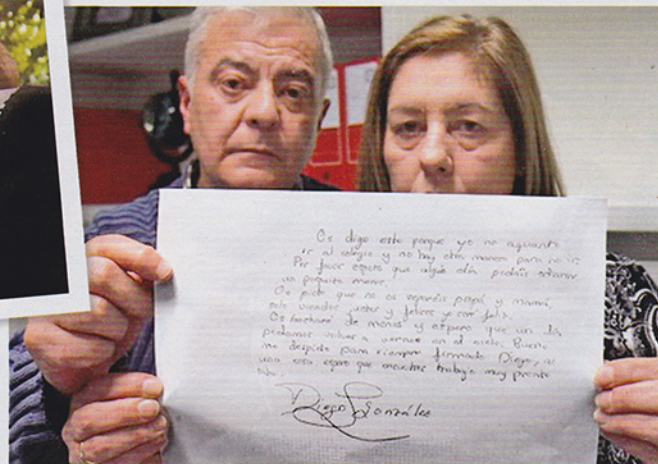 Os digo esto porque yo no aguanto
ir al colegio y no hay otra manera para no ir
Por favor espero que algún día podáis odiarme
un poquito menos.
Os pido que no os separéis papá y mamá,
solo viendoos juntos y felices yo seré feliz.
Os echaré de menos y espero que un día
podamos volver a vernos en el cielo. Bueno
me despido para siempre firmado Diego,
una cosa espero que encuentres trabajo muy pronto
Diego González